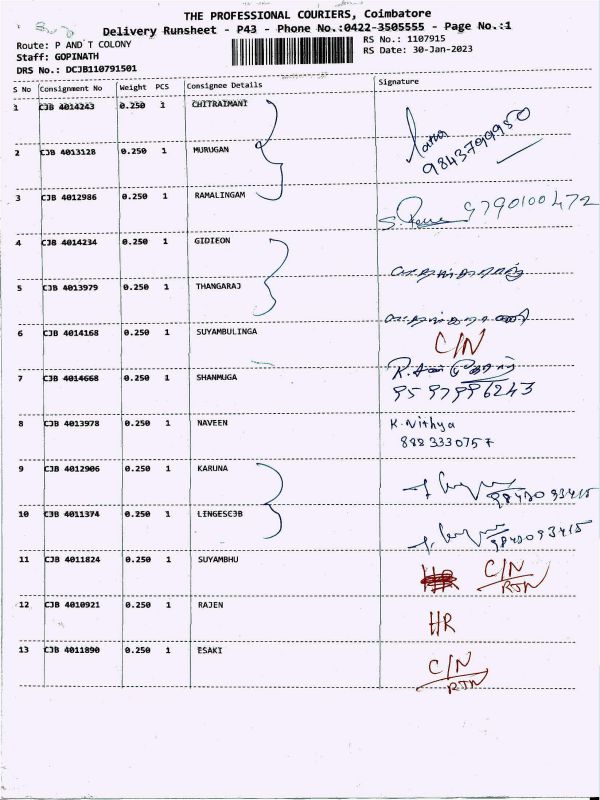 THE PROFESSIONAL COURIERS, Coimbatore
Delivery Runsheet - P43 - Phone No.:0422-3505555 - Page No.:1
Route: P AND T COLONY
RS No.: 1107915
Staff: GOPINATH
RS Date: 30-Jan-2023
DRS No.: DCJB110791501
S No Consignment No Weight PCS Consignee Details Signature
1 CJB 4014243 0.250 1 CHITRAIMANI
9843799950
2 CJB 4013128 0.250 1 MURUGAN
3 CJB 4012986 0.250 1 RAMALINGAM 9790100472
4 CJB 4014234 0.250 1 GIDIEON
5 CJB 4013979 0.250 1 THANGARAJ
6 CJB 4014168 0.250 1 SUYAMBULINGA C/N
7 CJB 4014668 0.250 1 SHANMUGA
9597996243
8 CJB 4013978 0.250 1 NAVEEN K. Nithya
8883330757
9 CJB 4012906 0.250 1 KARUNA 9843093415
10 CJB 4011374 0.250 1 LINGESCJB 9843093415
11 CJB 4011824 0.250 1 SUYAMBHU HR C/N
RTN
12 CJB 4010921 0.250 1 RAJEN HR
13 CJB 4011890 0.250 1 ESAKI C/N
RTN